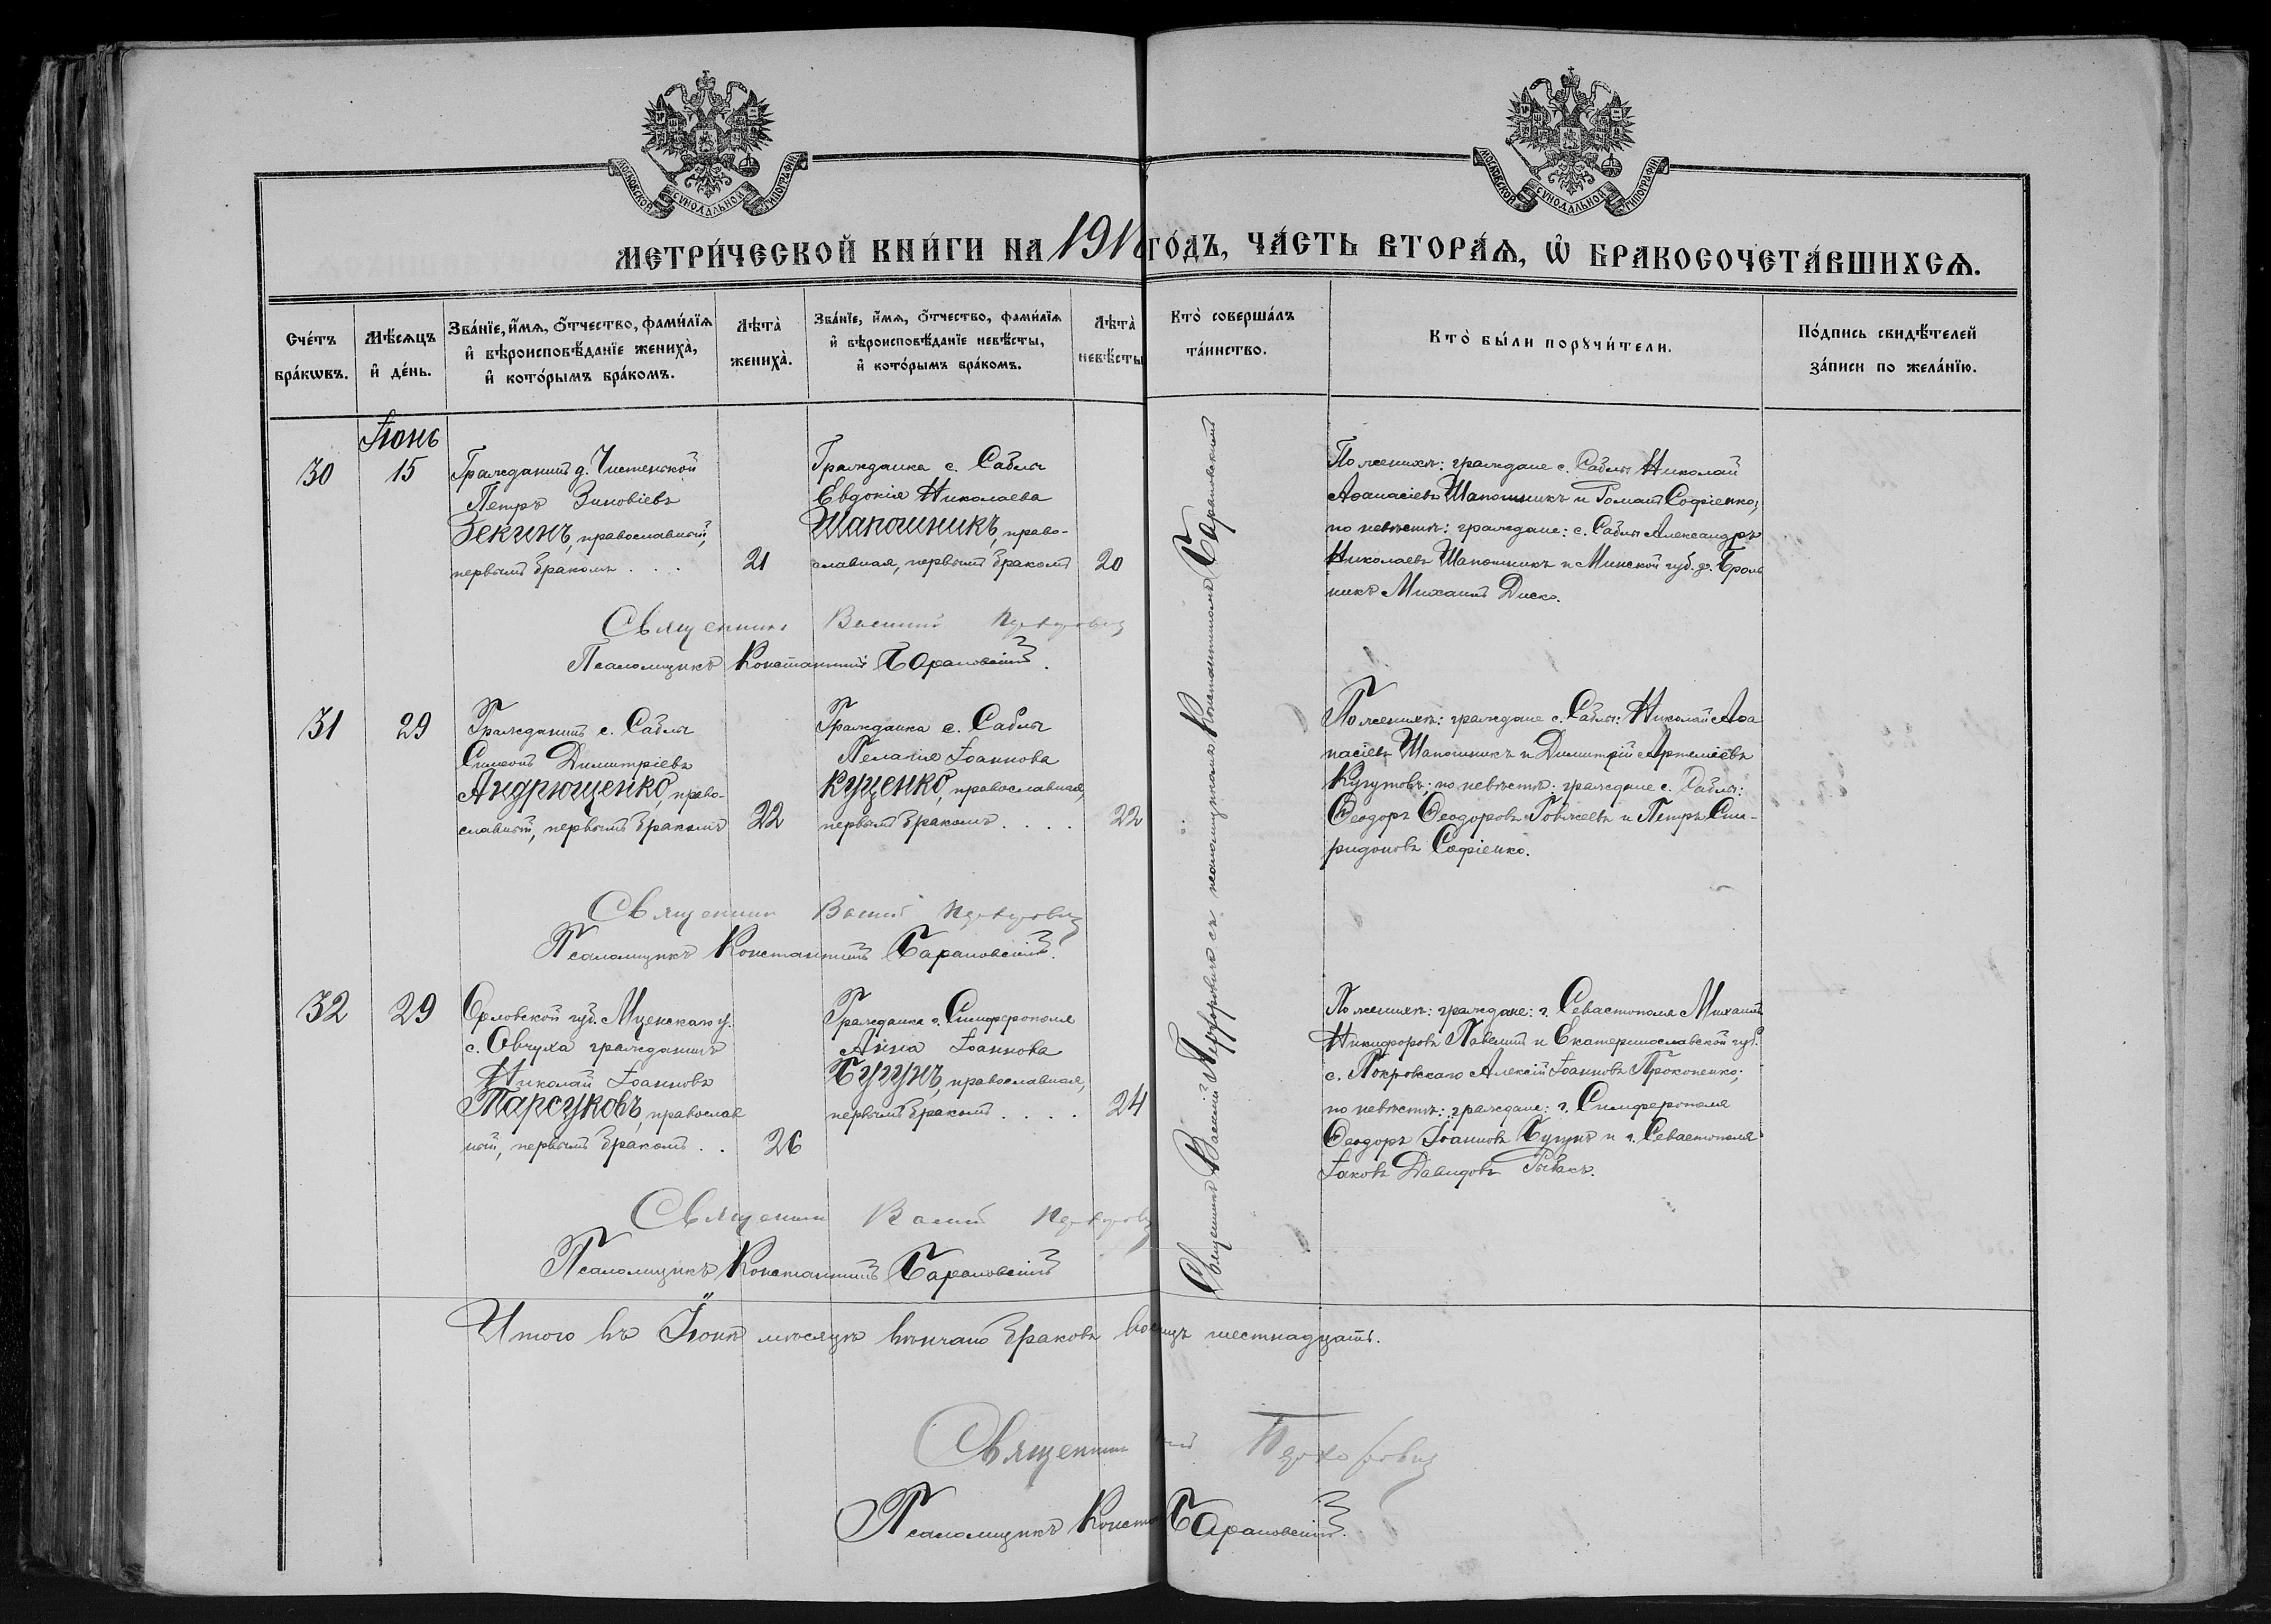 МОСКОВСКОЙ СѴНОДАЛЬНОЙ ТИПОГРАФІИ
МОСКОВСКОЙ СѴНОДАЛЬНОЙ ТИПОГРАФІИ
МЕТРИ́ЧЕСКОЙ КНИ́ГИ НА 191 ГО́ДЪ, ЧА́СТЬ ВТОРА́Ѧ, Ѽ БРАКОСОЧЕТА́ВШИХСѦ.
Сче́тъ
бра́кѡвъ.
Мѣ́сѧцъ
и҆ де́нь.
Зва́нїе, и҆́мѧ, ѻ҆́тчество, фами́лїѧ
и҆ вѣроисповѣ́данїе жениха̀,
и҆ кото́рымъ бра́комъ.
Лѣта̀
жениха̀.
Зва́нїе, и҆́мѧ, ѻ҆́тчество, фами́лїѧ
и҆ вѣроисповѣ́данїе невѣ́сты,
и҆ кото́рымъ бра́комъ.
Лѣта̀
невѣ́сты
Кто̀ соверша́лъ
та́инство.
Кто̀ бы́ли порꙋчи́тели.
По́дпись свидѣ́телей
за́писи по жела́нїю.
Іюнь
30
15
Гражданинъ д. Чистенькой
Петръ Зиновіевъ
Зекинъ, православный,
первымъ бракомъ . . .
21
Гражданка с. Саблы
Евдокія Николаева
Шапошникъ, право-
славная, первымъ бракомъ
20
По женихѣ: граждане с. Саблы Николай
Аѳанасіевъ Шапошникъ и Романъ Софіенко;
по невѣстѣ: граждане: с. Саблы Александръ
Николаевъ Шапошникъ и Минской губ. д.
никъ Михаилъ Диско.
Священникъ Василій
Псаломщикъ Константинъ Барановскій.
31
29
Гражданинъ с. Саблы
Симеонъ Димитріевъ
Андрющенко, право-
славный, первымъ бракомъ
22
Гражданка с. Саблы
Пелагія Іоаннова
Куценко, православная,
первымъ бракомъ . . . .
22
По женихѣ: граждане с. Саблы: Николай Аѳа
насіевъ Шапошникъ и Димитрій Артеміевъ
Кугутовъ; по невѣстѣ: граждане с. Саблы:
Ѳеодоръ Ѳеодоровъ и Петръ Спи-
ридоновъ Софіенко.
Священникъ Василій
Псаломщикъ Константинъ Барановскій.
32
29
Орловской губ. Мценскаго у.
с. Овчуха гражданинъ
Николай Іоанновъ
Тарсуковъ, православ
ный, первымъ бракомъ . .
26
Гражданка г. Симферополя
Анна Іоаннова
Бугунъ, православная,
первымъ бракомъ . . . .
24
По женихѣ: граждане: г. Севастополя Михаилъ
Никифоровъ и Екатеринославской губ.
с. Покровскаго Алексій Іоанновъ Прокопенко;
по невѣстѣ: граждане: г. Симферополя
Ѳеодоръ Іоанновъ Бугунъ и г. Севастополя
Іаковъ Давидовъ Рыбакъ.
Священникъ Василій съ псаломщикомъ Константиномъ Барановскимъ
Священникъ Василій
Псаломщикъ Константинъ Барановскій
Итого въ Іюнѣ мѣсяцѣ вѣнчано браковъ шестнадцать.
Священникъ
Псаломщикъ Барановскій.